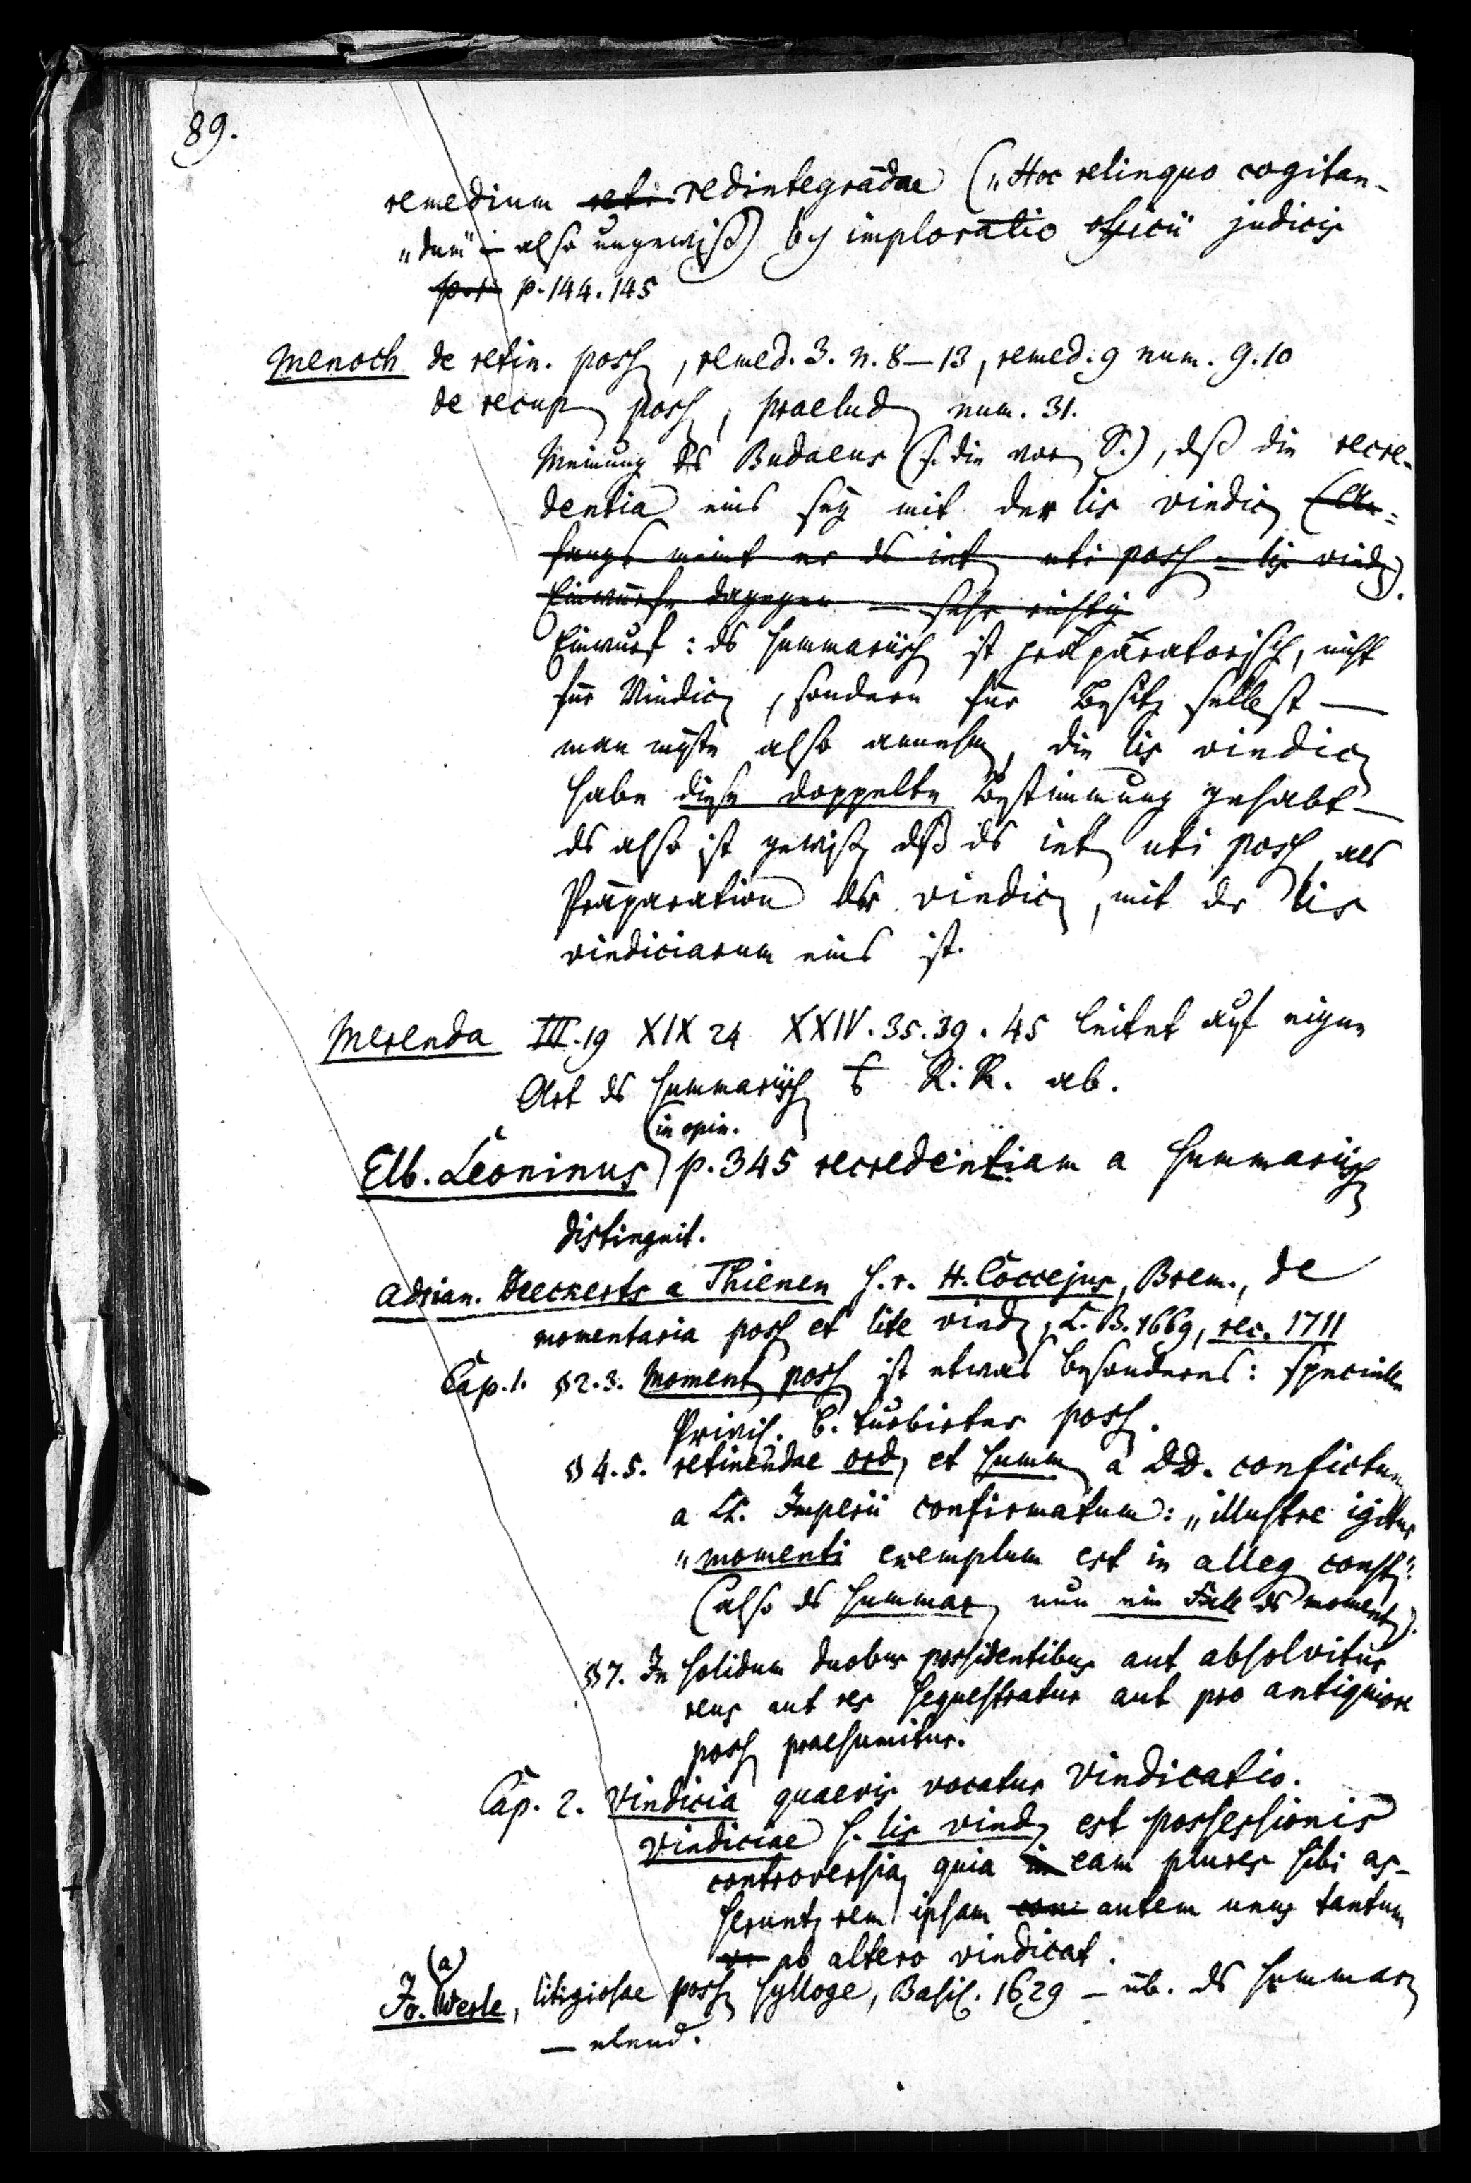 89.
remedium reti redintegrādae („Hoc relinquo cogitan-
„dum“ — also ungewiß) by imploratio officii judicis
p. 144. 145
Menoch de retin. poss, remed. 3. n. 8–13, remed. 9 num. 9. 10
de recup poss, praelud num. 31.
Meinung ds Budaeus (s. die vor S.), dß die recre-
dentia eins sey mit der lis vindic (An-
fangs meint er ds int uti poss = lis vind).
Einwürfe dagegen — sehr richtig
Einwurf: ds summariisch ist präparatorisch, nicht
für Vindic, sondern für Besitz selbst —
man müßte also annehm, die lis vindic
habe diese doppelte Bestimmung gehabt —
ds also ist gewiß dß ds int uti poss, als
Präparation der vindic, mit der lis
vindiciarum eins ist.
Merenda III. 19 XIX 24 XXIV. 35. 39. 45 leitet auf eigne
Art ds summariisch R. R. ab.
in opin.
Elb. Leoninus p. 345 recredentiam a summariisch
distinguit.
Adrian. Deeckerts a Thienen s. r. H. Coccejus, Brem., de
momentaria poss et lite vind, L. B. 1669, rec. 1711
Cap. 1. §2. 3. Moment poss ist etwas besonderes: specielle
Privil. turbirter poss.
§4. 5. retinendae ord et summ a DD. confictum
a LL. Imperii confirmatum: „illustre igitur
„momenti exemplum est in alleg const“
(also ds summar nur ein Fall ds moment).
§7. In solidum duobus possidentibus aut absolvitur
reus aut res sequestratur aut pro antiquiore
poss praesumitur.
Cap. 2. Vindicia quaevis vocatur vindicatio.
Vindiciae s. lis vind est possessionis
controversia, quia in eam plures sibi as-
serunt, rem ipsam autem unus tantum
ab altero vindicat.
(a)
Jo. Werle, litigiosae poss sylloge, Basil. 1629 — üb. ds summar
— elend.